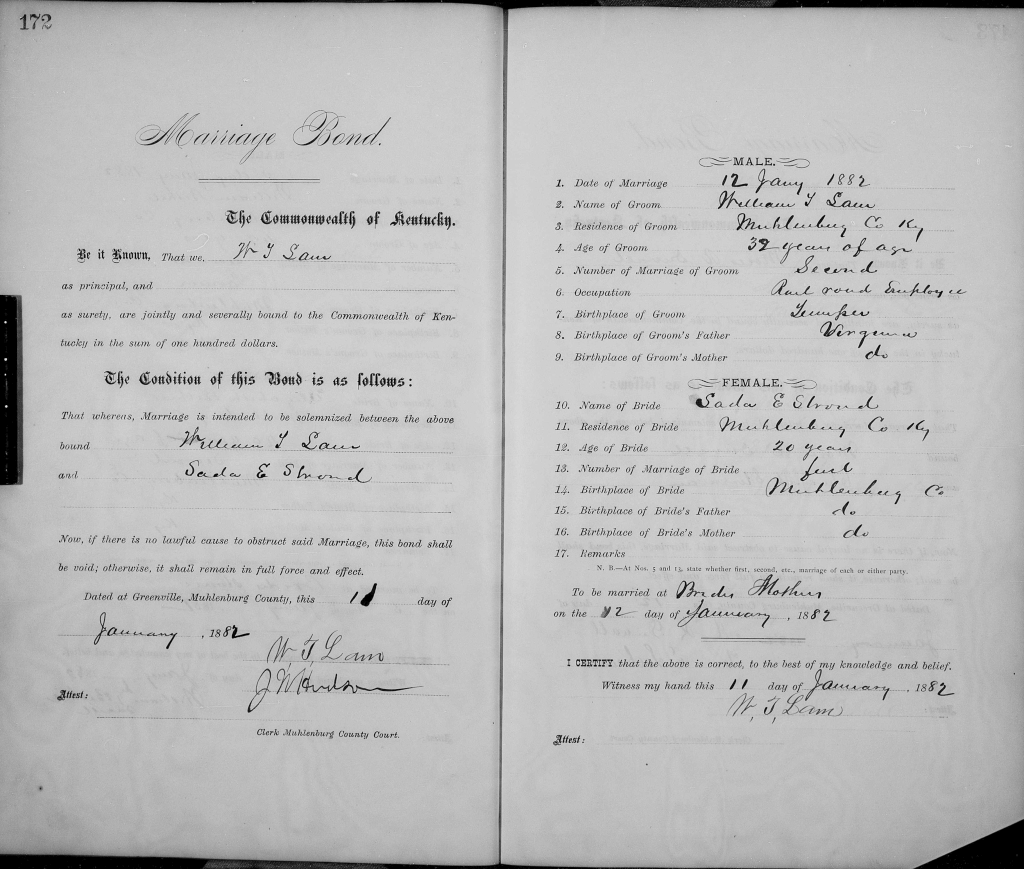 172
Marriage Bond.
The Commonwealth of Kentucky.
Be it Known, That we, W T Lam
as principal, and
as surety, are jointly and severally bound to the Commonwealth of Ken-
tucky in the sum of one hundred dollars.
The Condition of this Bond is as follows:
That whereas, Marriage is intended to be solemnized between the above
bound William T Lam
and Sada E Stroud
Now, if there is no lawful cause to obstruct said Marriage, this bond shall
be void; otherwise, it shall remain in full force and effect.
Dated at Greenville, Muhlenburg County, this 11 day of
January, 1882
W, T, Lam
Attest: J W Hudson
Clerk Muhlenburg County Court.
MALE.
1. Date of Marriage 12 Jany 1882
2. Name of Groom William T Lam
3. Residence of Groom Muhlenburg Co Ky
4. Age of Groom 32 years of age
5. Number of Marriage of Groom Second
6. Occupation Rail road Employee
7. Birthplace of Groom
8. Birthplace of Groom's Father Virginia
9. Birthplace of Groom's Mother do
FEMALE.
10. Name of Bride Sada E Stroud
11. Residence of Bride Muhlenburg Co Ky
12. Age of Bride 20 years
13. Number of Marriage of Bride first
14. Birthplace of Bride Muhlenburg Co
15. Birthplace of Bride's Father do
16. Birthplace of Bride's Mother do
17. Remarks
N. B.—At Nos. 5 and 13, state whether first, second, etc., marriage of each or either party.
To be married at Brides Mothers
on the 12 day of January, 1882
I CERTIFY that the above is correct, to the best of my knowledge and belief.
Witness my hand this 11 day of January, 1882
W, T, Lam
Attest: